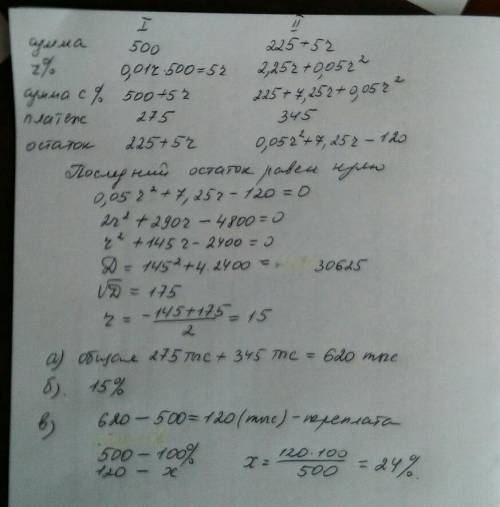 I II
сумма 500 225+5r
r% 0,01r·500=5r 2,25r+0,05r²
сумма с % 500+5r 225+7,25r+0,05r²
платеж 275 345
остаток 225+5r 0,05r²+7,25r-120
Последний остаток равен нулю
0,05r²+7,25r-120=0
2r²+290r-4800=0
r²+145r-2400=0
D=145²+4.2400= 30625
√D=175
r=-145+175/2=15
а) общая 275 тыс+345 тыс=620 тыс
б). 15%
в) 620-500=120(тыс)-переплата
500-100% x=120·100/500=24%.
120-x